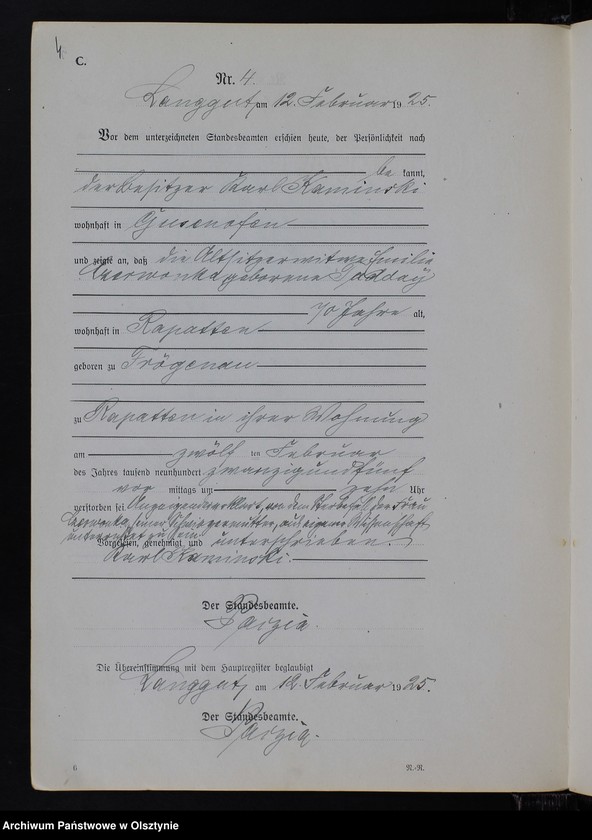 4.
C.
Nr. 4.
Langgut, am 12. Februar 1925.
Vor dem unterzeichneten Standesbeamten erschien heute, der Persönlichkeit nach
be kannt,
der Besitzer Karl Kaminski
wohnhaft in Gusenofen
und zeigte an, daß die Altsitzerwitwe Emilie
Czerwonka geborene Padday
70 Jahre alt,
wohnhaft in Rapatten
geboren zu Frögenau
zu Rapatten in ihrer Wohnung
am zwölf ten Februar
des Jahres tausend neunhundert zwanzigundfünf
vor mittags um zehn Uhr
verstorben sei. Anzeigender erklärt, von dem Sterbefall der Frau
Czerwonka, seiner Schwiegermutter, aus eigener Wissenschaft
unterrichtet zu sein.
Vorgelesen, genehmigt und unterschrieben.
Karl Kaminski.
Der Standesbeamte.
Die Übereinstimmung mit dem Hauptregister beglaubigt
Langgut, am 12. Februar 1925.
Der Standesbeamte.
6
N.-R.
Archiwum Państwowe w Olsztynie